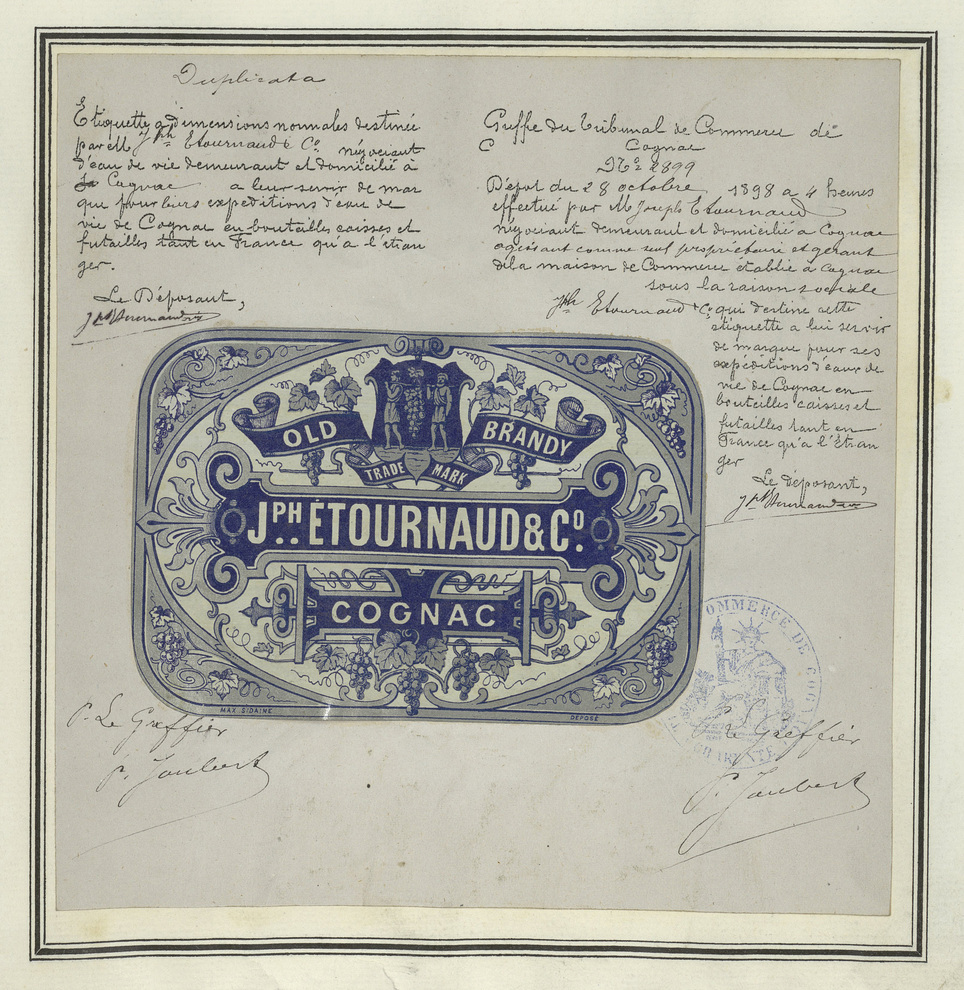 Duplicata
Etiquette a dimensions normales destinée
par M Jph Etournaud & Co négociant
d'eau de vie demeurant et domicilié à
Cognac a leur servir de mar
que pour leurs expeditions d'eau de
vie de Cognac en bouteilles caisses et
futailles tant en France qu'a l'étran
ger.
Le Déposant,
Greffe du Tribunal de Commerce de
C Cognac
No 2899
Dépot du 28 octobre 1898 a 4 heures
effectué par M Joseph Etournaud
négociant demeurant et domicilié a Cognac
agissant comme seul propriétaire et gérant
de la maison de Commerce établie à Cognac
sous la raison sociale
Jph Etournaud & Co qui destine cette
étiquette a lui servir
de marque pour ses
expéditions d'eaux de
vie de Cognac en
bouteilles caisses et
futailles tant en
France qu'a l'étran
ger
Le déposant,
OLD BRANDY
TRADE MARK
JPH ETOURNAUD & Co.
COGNAC
MAX SIDAINE
DÉPOSÉ
P. Le Greffier
P. Joubert
COMMERCE DE COGNAC
CHARENTE
P. Le Greffier
P. Joubert